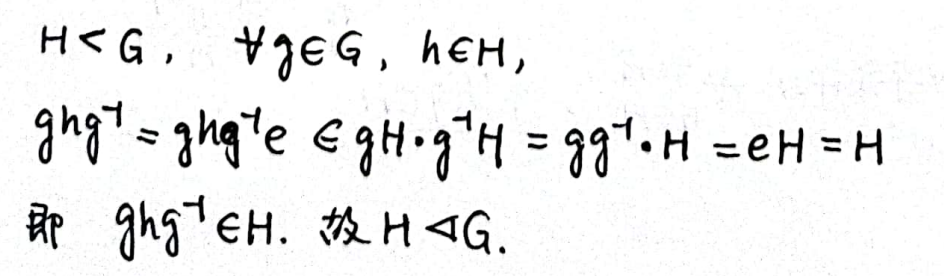 H<G, ∀g∈G, h∈H,
ghg⁻¹=ghg⁻¹e ∈gH·g⁻¹H = gg⁻¹·H =eH=H
即 ghg⁻¹∈H. 故 H⊲G.